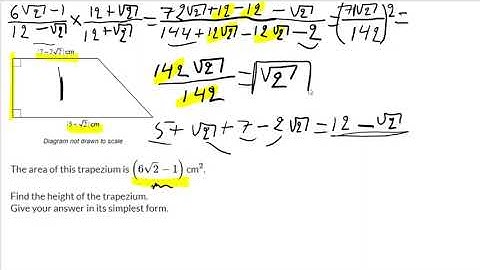 (6√2 − 1)/(12 − √2) × (12 + √2)/(12 + √2) = (72√2 + 12 − 12 − √2)/(144 + 12√2 − 12√2 − 2) = (71√2/142) 2 =
(7 − 2√2) cm
142√2/142 = √2
5 + √2 + 7 − 2√2 = 12 − √2
√2) cm
Diagram not drawn to scale
The area of this trapezium is (6√2 − 1) cm².
Find the height of the trapezium.
Give your answer in its simplest form.